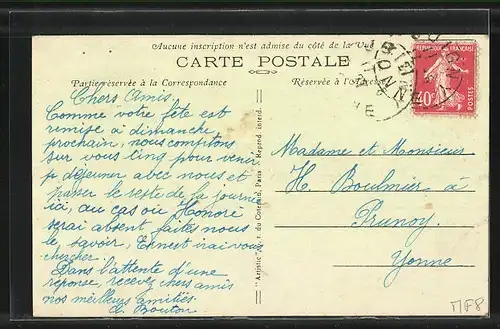 Aucune inscription n'est admise du côté de la Vue
CARTE POSTALE
Partie réservée à la Correspondance
Réservée à l'Adresse
RÉPUBLIQUE FRANÇAISE
40c
POSTES
YONNE
Chers Amis,
Comme votre fête est
remise à dimanche
prochain, nous comptons
sur vous cinq pour venir
déjeuner avec nous et
passer le reste de la journée
ici, au cas où Honoré
serai absent faites nous
le savoir, Ernest irai vous
chercher.
Dans l'attente d'une
réponse, recevez chers amis
nos meilleurs amitiés.
Bouton
"Artistic" Paris - Reprod. interd.
Madame et Monsieur
H. Boulmier à
Prunoy.
Yonne
MF8